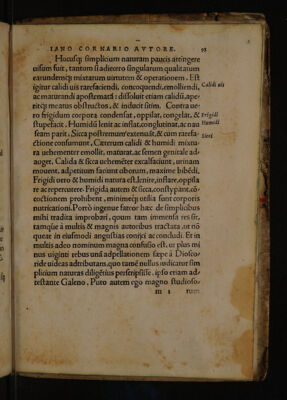 IANO CORNARIO AVTORE. 98
Hucusq; simplicium naturam paucis attingere
uisum fuit, tantum si adiecero singularum qualitatum
earundemq; mixtarum uirtutem & operationem. Est
igitur calidi uis rarefaciendi, concoquendi, emolliendi,
Calidi uis
ac maturandi apostemata: dissoluit etiam calidũ, ape-
ritq; meatus obstructos, & inducit sitim. Contra ue-
ro frigidum corpora condensat, oppilat, congelat, &
Frigidi
stupefacit. Humidũ lenit ac inflat, conglutinat, ac nau
Humidi
seam parit. Sicca postremum extenuat, & cum rarefa-
Sicci
ctione consumunt, Cæterum calidi & humidi mixtu-
ra uehementer emollit, maturat, ac semen genitale ad-
auget. Calida & sicca uehemẽter excalfaciunt, urinam
mouent, ad petitum faciunt ciborum, maxime bibẽdi.
Frigidi uero & humidi natura est, lenire, inflare, oppila
re ac repercutere. Frigida autem & sicca, constypant, cõ-
coctionem prohibent, minimeq; utilia sunt corporis
nutricationi. Porrò ingenue fateor hæc de simplicibus
mihi tradita improbari, quum tam immensa res sit,
tamque à multis & magnis autoribus tractata, ut nõ
queat in eiusmodi angustias conijci ac concludi. Et in
multis adeo nominum magna confusio est, ut plus mi
nus uiginti rebus unã adpellationem sæpe à Diosco-
ride uideas adtributam, quo tamẽ nullus iudicatur sim
plicium naturas diligẽtius perscripsisse, ipso etiam ad-
testante Galeno. Puto autem ego magno studioso-
m 2 rum